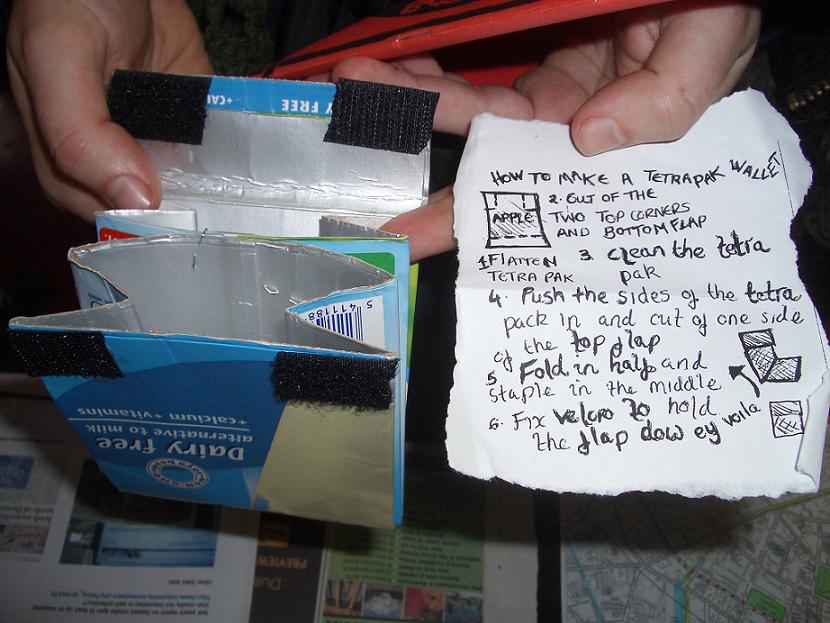 +CAL
Y FREE
5 411188
Dairy free
alternative to milk
+calcium +vitamins
HOW TO MAKE A TETRAPAK WALLET
APPLE
1. FLATTEN
TETRA PAK
2. CUT OF THE
TWO TOP CORNERS
AND BOTTOM FLAP
3. clean the tetra
pak
4. Push the sides of the tetra
pack in and cut of one side
of the top flap
5. Fold in half and
staple in the middle
6. Fix velcro to hold
the flap dow ey voila
PREVIEW
other links later